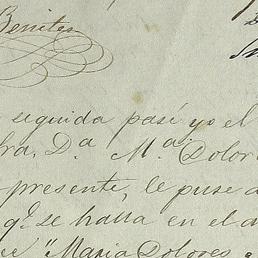 Benites
seguida pasé yo el
Dª Mª Dolor
presente, le puse d
qe se halla en el a
"Maria Dolores